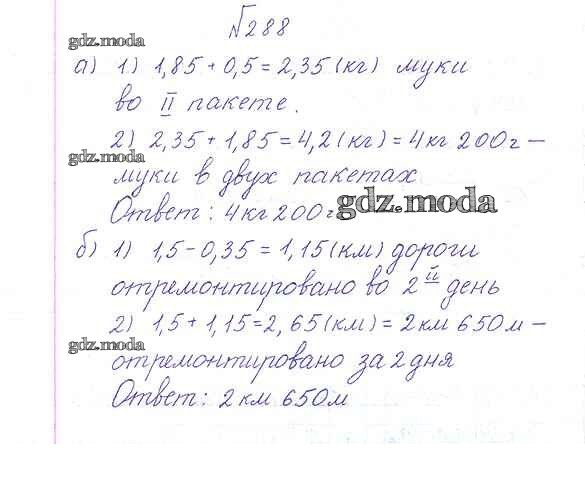 №288
gdz.moda
а) 1) 1,85 + 0,5 = 2,35 (кг) муки
во II пакете.
2) 2,35 + 1,85 = 4,2 (кг) = 4 кг 200 г —
gdz.moda
муки в двух пакетах
Ответ: 4 кг 200 г
gdz.moda
б) 1) 1,5 - 0,35 = 1,15 (км) дороги
отремонтировано во 2 й день
2) 1,5 + 1,15 = 2,65 (км) = 2 км 650 м —
gdz.moda
отремонтировано за 2 дня
Ответ: 2 км 650 м